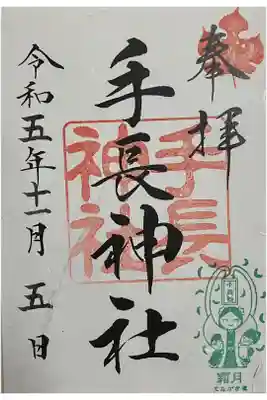 奉拝
手長神社
手長
神社
令和五年十一月五日
霜月